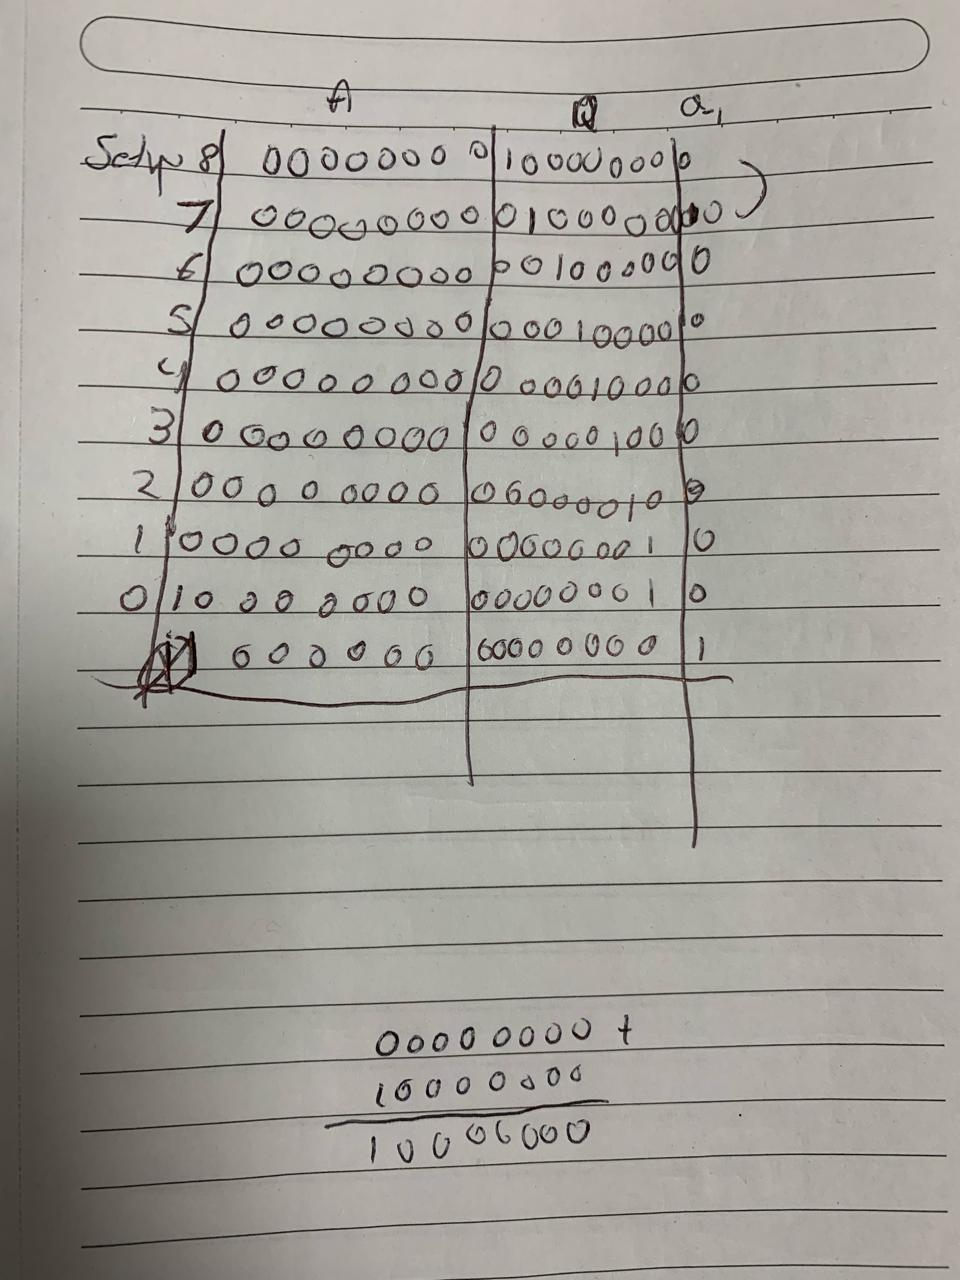 A Q Q-1
Setup 8 00000000 10000000 0
7 00000000 01000000 0
6 00000000 00100000 0
5 00000000 00010000 0
4 00000000 00001000 0
3 00000000 00000100 0
2 00000000 00000010 0
1 00000000 00000001 0
0 10000000 00000001 0
000000 00000000 1
00000000 +
10000000
10000000